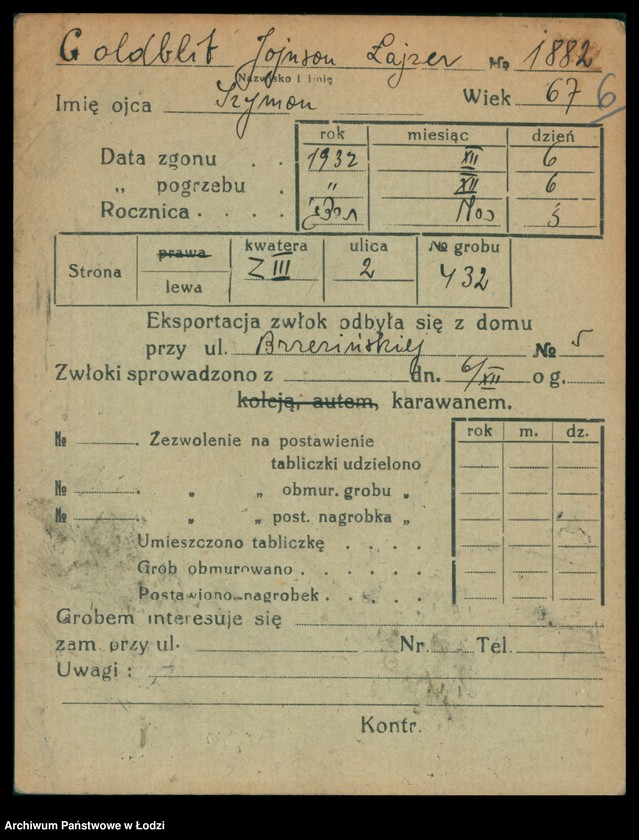 Goldblit Lajzer № 1882
Nazwisko i imię
Imię ojca Szymon Wiek 67 6
rok miesiąc dzień
Data zgonu . . 1932 XII 6
„ pogrzebu . „ XII 6
Rocznica . . . .
Strona prawa lewa kwatera Z III ulica 2 № grobu 432
Eksportacja zwłok odbyła się z domu
przy ul. Brzezińskiej № 5
Zwłoki sprowadzono z dn. 6/XII o g.
koleją, autom, karawanem.
rok m. dz.
№ . Zezwolenie na postawienie
tabliczki udzielono
№ . „ „ obmur. grobu „
№ . „ „ post. nagrobka „
Umieszczono tabliczkę . . . .
Grób obmurowano . . . . . .
Postawiono nagrobek . . . . .
Grobem interesuje się
zam. przy ul. Nr. Tel.
Uwagi :
Kontr.
Archiwum Państwowe w Łodzi